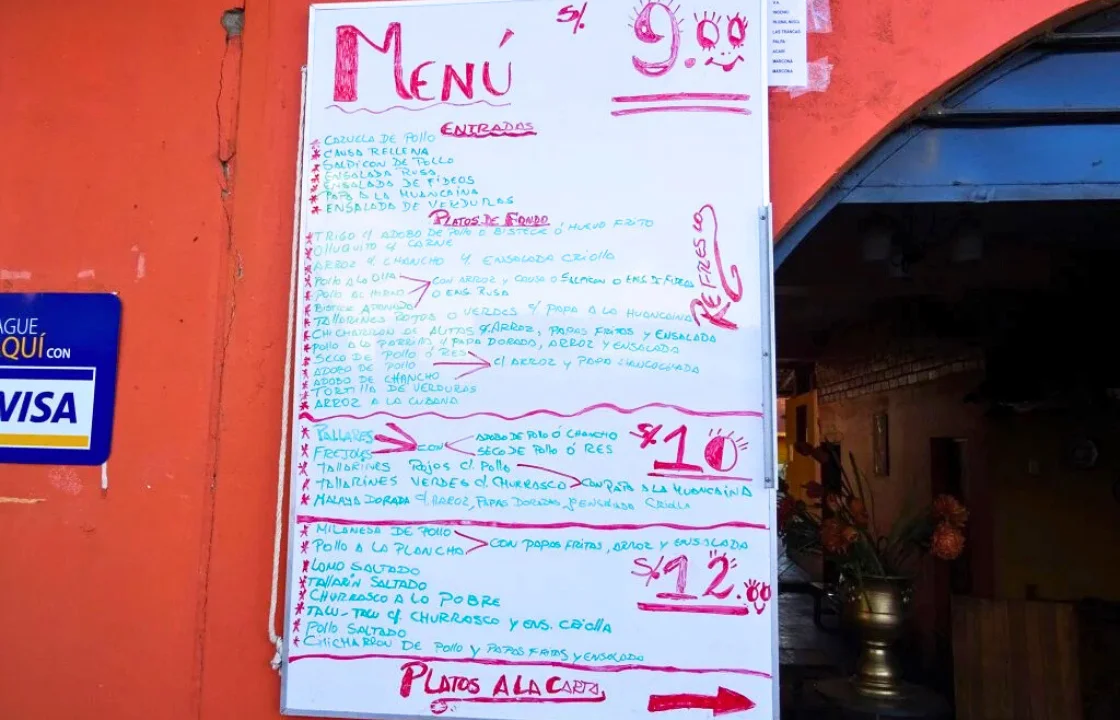 MENÚ S/. 9.00
ENTRADAS
* CAZUELA DE POLLO
* CAUSA RELLENA
* SALPICON DE POLLO
* ENSALADA RUSA
* ENSALADA DE FIDEOS
* PAPA A LA HUANCAINA
* ENSALADA DE VERDURAS
PLATOS DE FONDO
REFRESCO
* TRIGO c/ ADOBO DE POLLO O BISTECK Ó HUEVO FRITO
* OLLUQUITO c/ CARNE
* ARROZ c/ CHANCHO Y ENSALADA CRIOLLA
* POLLO A LA OLLA
* POLLO AL HORNO
* BISTECK APANADO
CON ARROZ Y CAUSA O SALPICON O ENS. DE FIDEOS
O ENS. RUSA
* TALLARINES ROJOS O VERDES c/ PAPA A LA HUANCAINA
* CHICHARRON DE ALITAS c/ ARROZ, PAPAS FRITAS Y ENSALADA
* POLLO A LA PARRILLA c/ PAPA DORADA, ARROZ Y ENSALADA
* SECO DE POLLO Ó RES
* ADOBO DE POLLO
* ADOBO DE CHANCHO
c/ ARROZ Y PAPA SANCOCHADA
* TORTILLA DE VERDURAS
* ARROZ A LA CUBANA
* PALLARES
* FREJOLES
CON
ADOBO DE POLLO Ó CHANCHO
SECO DE POLLO Ó RES
S/. 10
* TALLARINES ROJOS c/. POLLO
* TALLARINES VERDES c/. CHURRASCO
CON PAPA A LA HUANCAINA
* MALAYA DORADA c/. ARROZ, PAPAS DORADAS, Y ENSALADA CRIOLLA
* MILANESA DE POLLO
* POLLO A LA PLANCHA
CON PAPAS FRITAS, ARROZ Y ENSALADA
S/. 12.00
* LOMO SALTADO
* TALLARIN SALTADO
* CHURRASCO A LO POBRE
* TACU-TACU c/. CHURRASCO Y ENS. CRIOLLA
* POLLO SALTADO
* CHICHARRON DE POLLO Y PAPAS FRITAS Y ENSALADA
PLATOS A LA CARTA
AGUE
QUÍ CON
VISA
LAS TRANCAS
PALPA
MARCONA
MARCONA